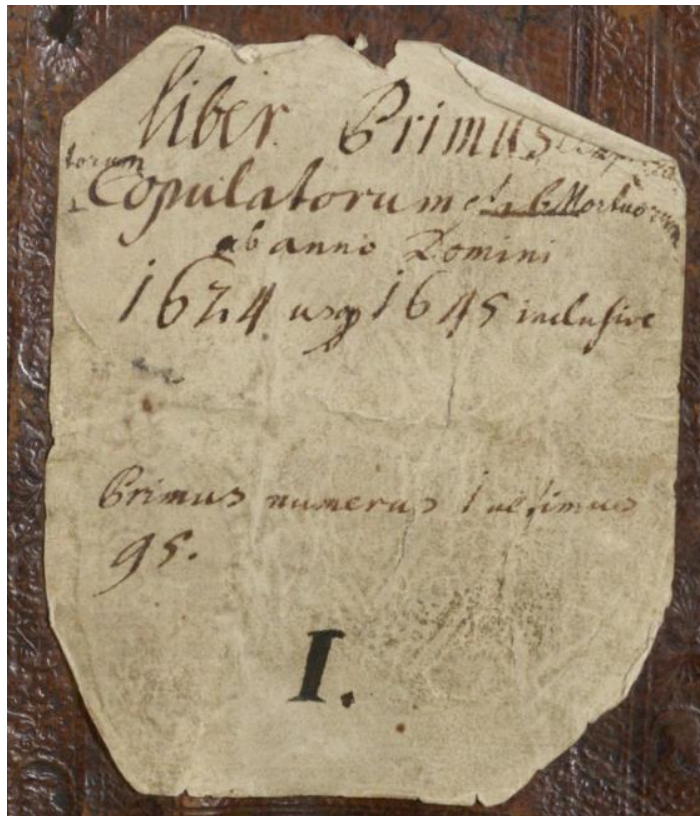 Liber Primus
torum
Copulatorum et Mortuorum
ab anno Domini
1624 usq 1645 inclusive
Primus numerus 1 ultimus
95.
I.